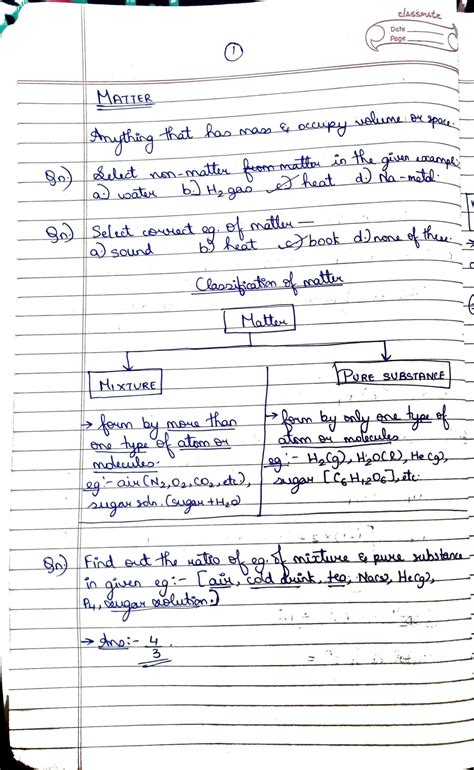 classmate
Date
Page
1
MATTER
Anything that has mass & occupy volume or space.
Qn) Select non-matter from matter in the given example:
a) water b) H2 gas c) heat d) Na-metal.
Qn) Select correct eg. of matter —
a) sound b) heat c) book d) none of these.
Classification of matter
Matter
MIXTURE
→ form by more than
one type of atom or
molecules.
eg:- air (N2, O2, CO2, etc),
sugar soln. (sugar + H2O)
PURE SUBSTANCE
→ form by only one type of
atom or molecules.
eg:- H2(g), H2O(l), He(g),
sugar [C6H12O6], etc.
Qn) Find out the ratio of eg. of mixture & pure substance
in given eg:- [air, cold drink, tea, NaCl(s), He(g),
P4, sugar solution.)
→ Ans:- 4
3